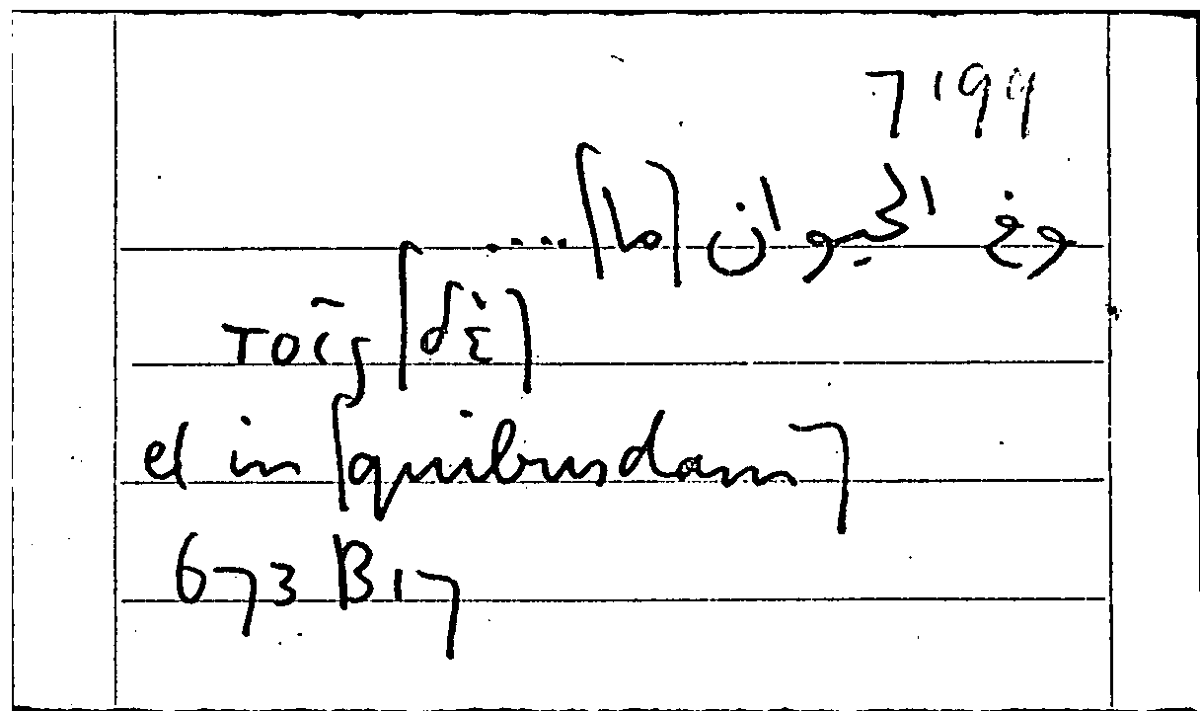 7199
وفي الحيوان ⌈ما⌉ ....
τοῖς ⌈δὲ⌉
et in ⌈quibusdam⌉
673 B17